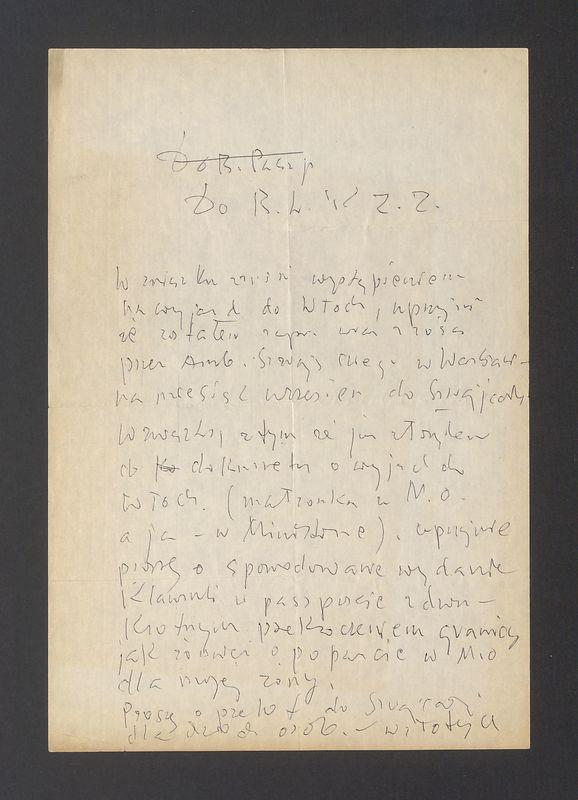 Do B. Paszp
Do B. W. i Z. Z.
W związku z wystąpieniem
na wyjazd do Włoch, uprzejm
że zostałem zapr. wraz z żoną
przez Amb. Szwajcarskiego w Warszaw-
na miesiąc wrzesień do Szwajcarii
W związku z tym że już złożyłem
do dokumenta o wyjazd do
Włoch. (małżonka w M.O.
a ja - w Ministrze). uprzejmie
proszę o spowodowanie wydanie
klauzuli w paszporcie z dwu-
krotnym przekroczeniem granicy
jak również o poparcie w MO
dla mojej żony.
Proszę o przelot do Szwajcarii
dla dwóch osób. -